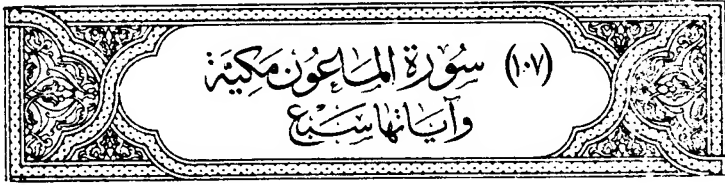 (١٠٧) سُورَة المَاعُون مَكيَّة
وَآيَاتُهَا سَبْع